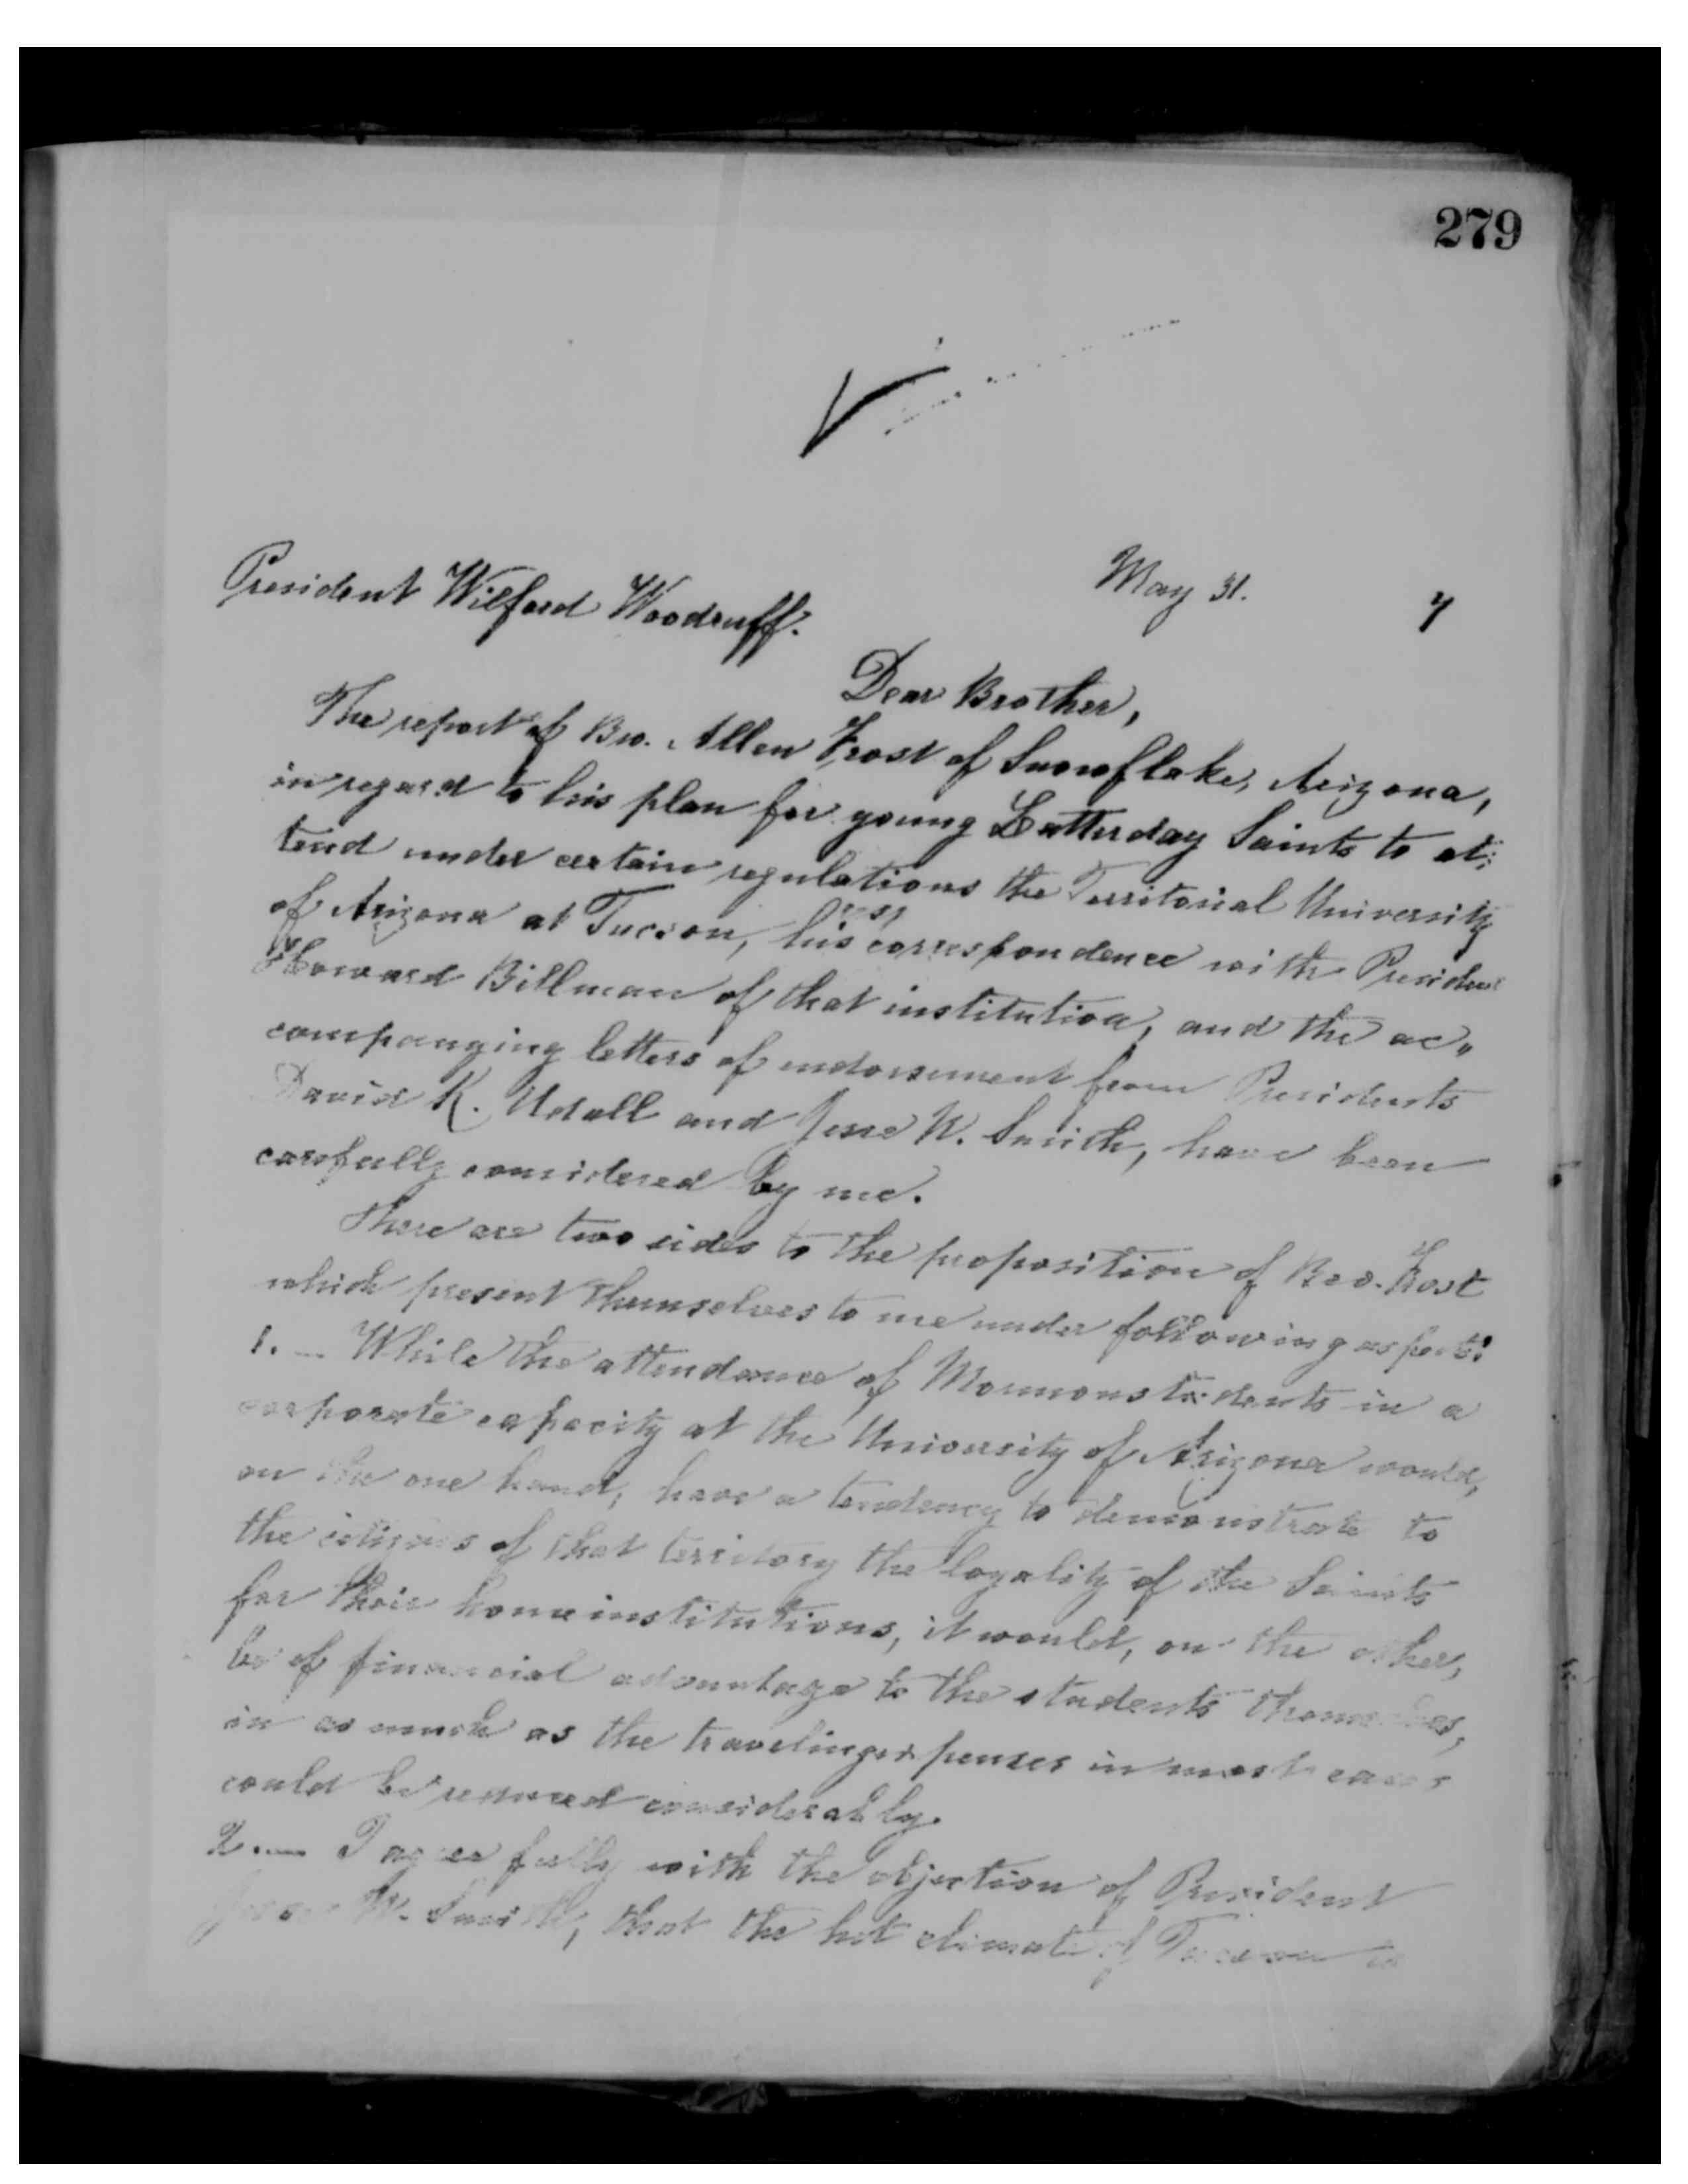 279
May 31. 7
President Wilford Woodruff.
Dear Brother,
The report of Bro. Allen Frost of Snowflake, Arizona,
in regard to his plan for young Latterday Saints to at-
tend under certain regulations the Territorial University
of Arizona at Tucson, his correspondence with President
Howard Billman of that institution, and the ac„
companying letters of endorsement from Presidents
David K. Udall and Jesse N. Smith, have been
carefully considered by me.
There are two sides to the proposition of Bro. Frost
which present themselves to me under following aspects:
1. — While the attendance of Mormon students in a
corporate capacity at the University of Arizona would,
on the one hand, have a tendency to demonstrate to
the citizens of that territory the loyality of the Saints
for their home institutions, it would, on the other,
be of financial advantage to the students themselves,
in as much as the traveling expenses in most cases
could be reduced considerably.
2. — I agree fully with the objection of President
Jesse N. Smith, that the hot climate of Tucson is